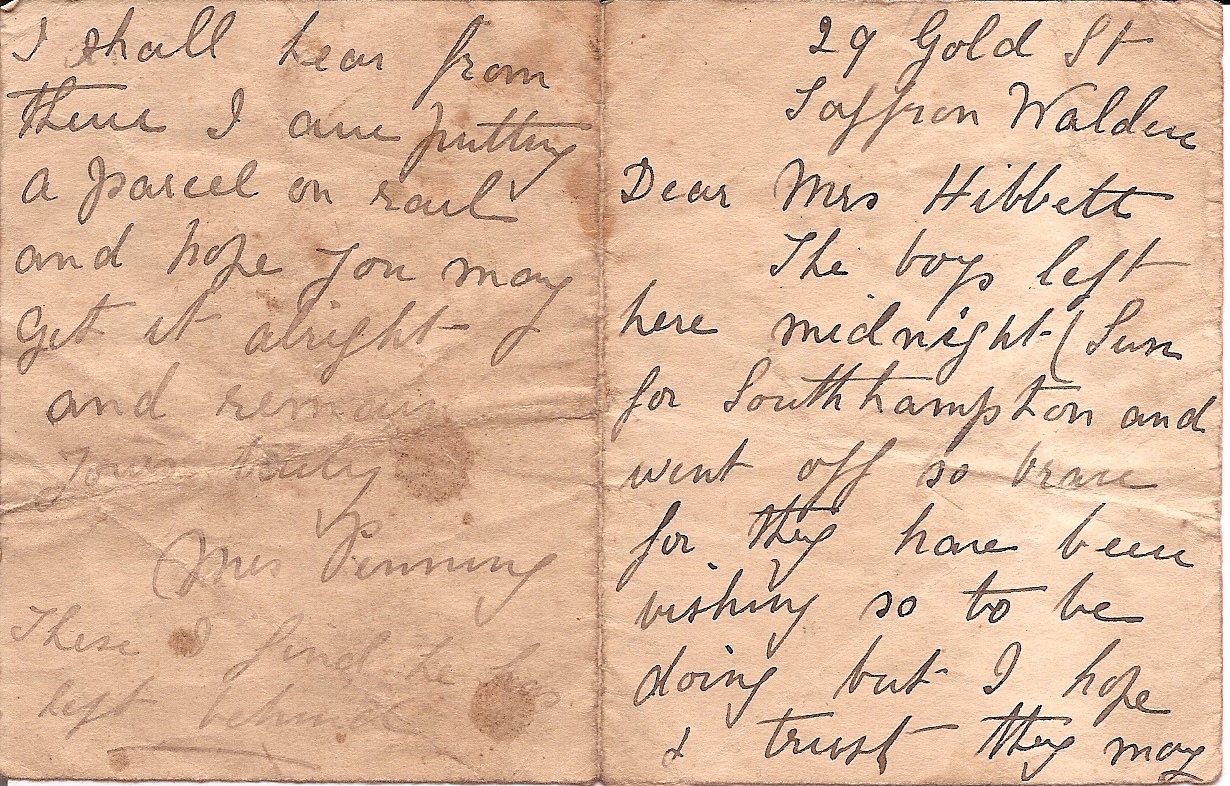 29 Gold St
Saffron Walden
Dear Mrs Hibbett
The boys left
here midnight (Sun
for Southhampton and
went off so brave
for they have been
wishing so to be
doing but I hope
& trust they may
I shall hear from
them I am putting
a parcel on rail
and hope you may
get it alright
and remain
Yours truly
Mrs
These I find he has
left behind